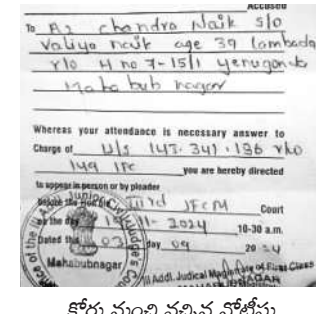 Accused
To A2 chandra Naik S/o
Valiya naik age 39 lambada
r/o H no 7-15/1 yenugonda
Mahabub nagar
Whereas your attendance is necessary answer to
Charge of U/s 143. 341. 186 r/w
149 IPC you are hereby directed
to appear in person or by pleader
before the Hon'ble Third JFCM Court
as the day 11- 2024 10-30 a.m.
Dated this 03 day 09 20 24
Mahabubnagar
III Addl. Judical Magistrate of First Class
కోర్టు నుంచి వచ్చిన నోటీసు